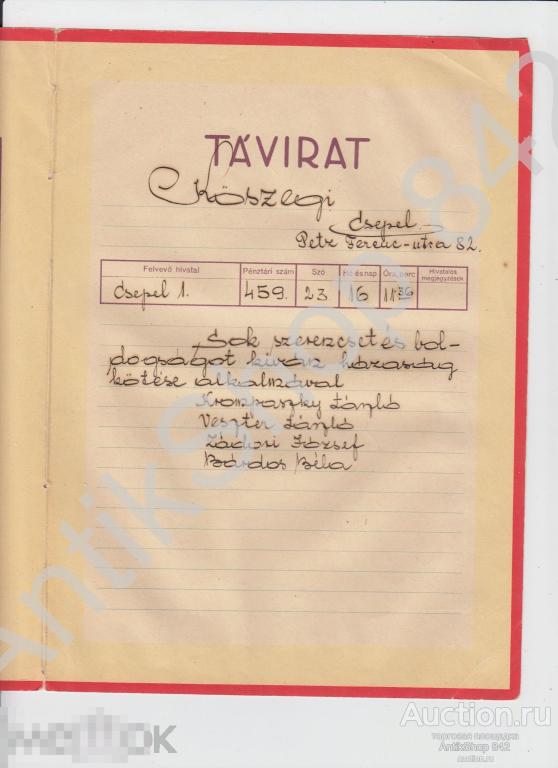 TÁVIRAT
Kőszegi
Csepel.
Petz Ferenc-utca 82.
Felvevő hivatal Pénztári szám Szó Hó és nap Óra, perc Hivatalos megjegyzések
Csepel 1. 459. 23 16 11 36
Sok szerencsét és bol-
dogságot kíván házaság
kötése alkalmával
Krompaszky László
Veszter László
Zádori József
Bárdos Béla
AntikShop 842
Auction.ru
торговая площадка
AntikShop 842
auction.ru